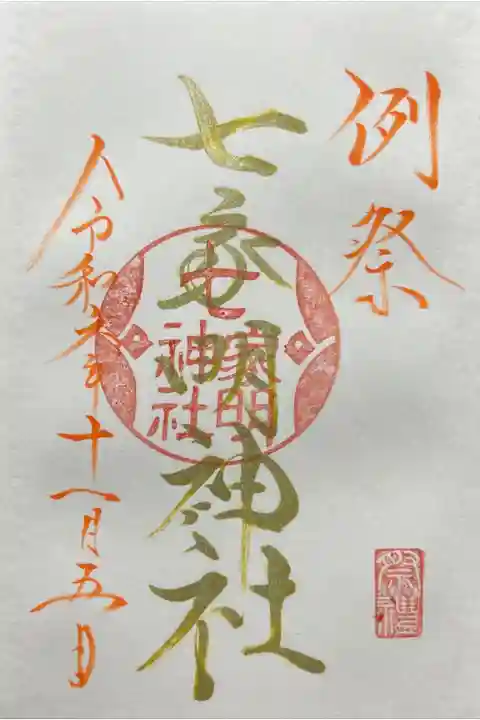 例祭
七家明神社
令和六年十一月五日
七
家明
神社